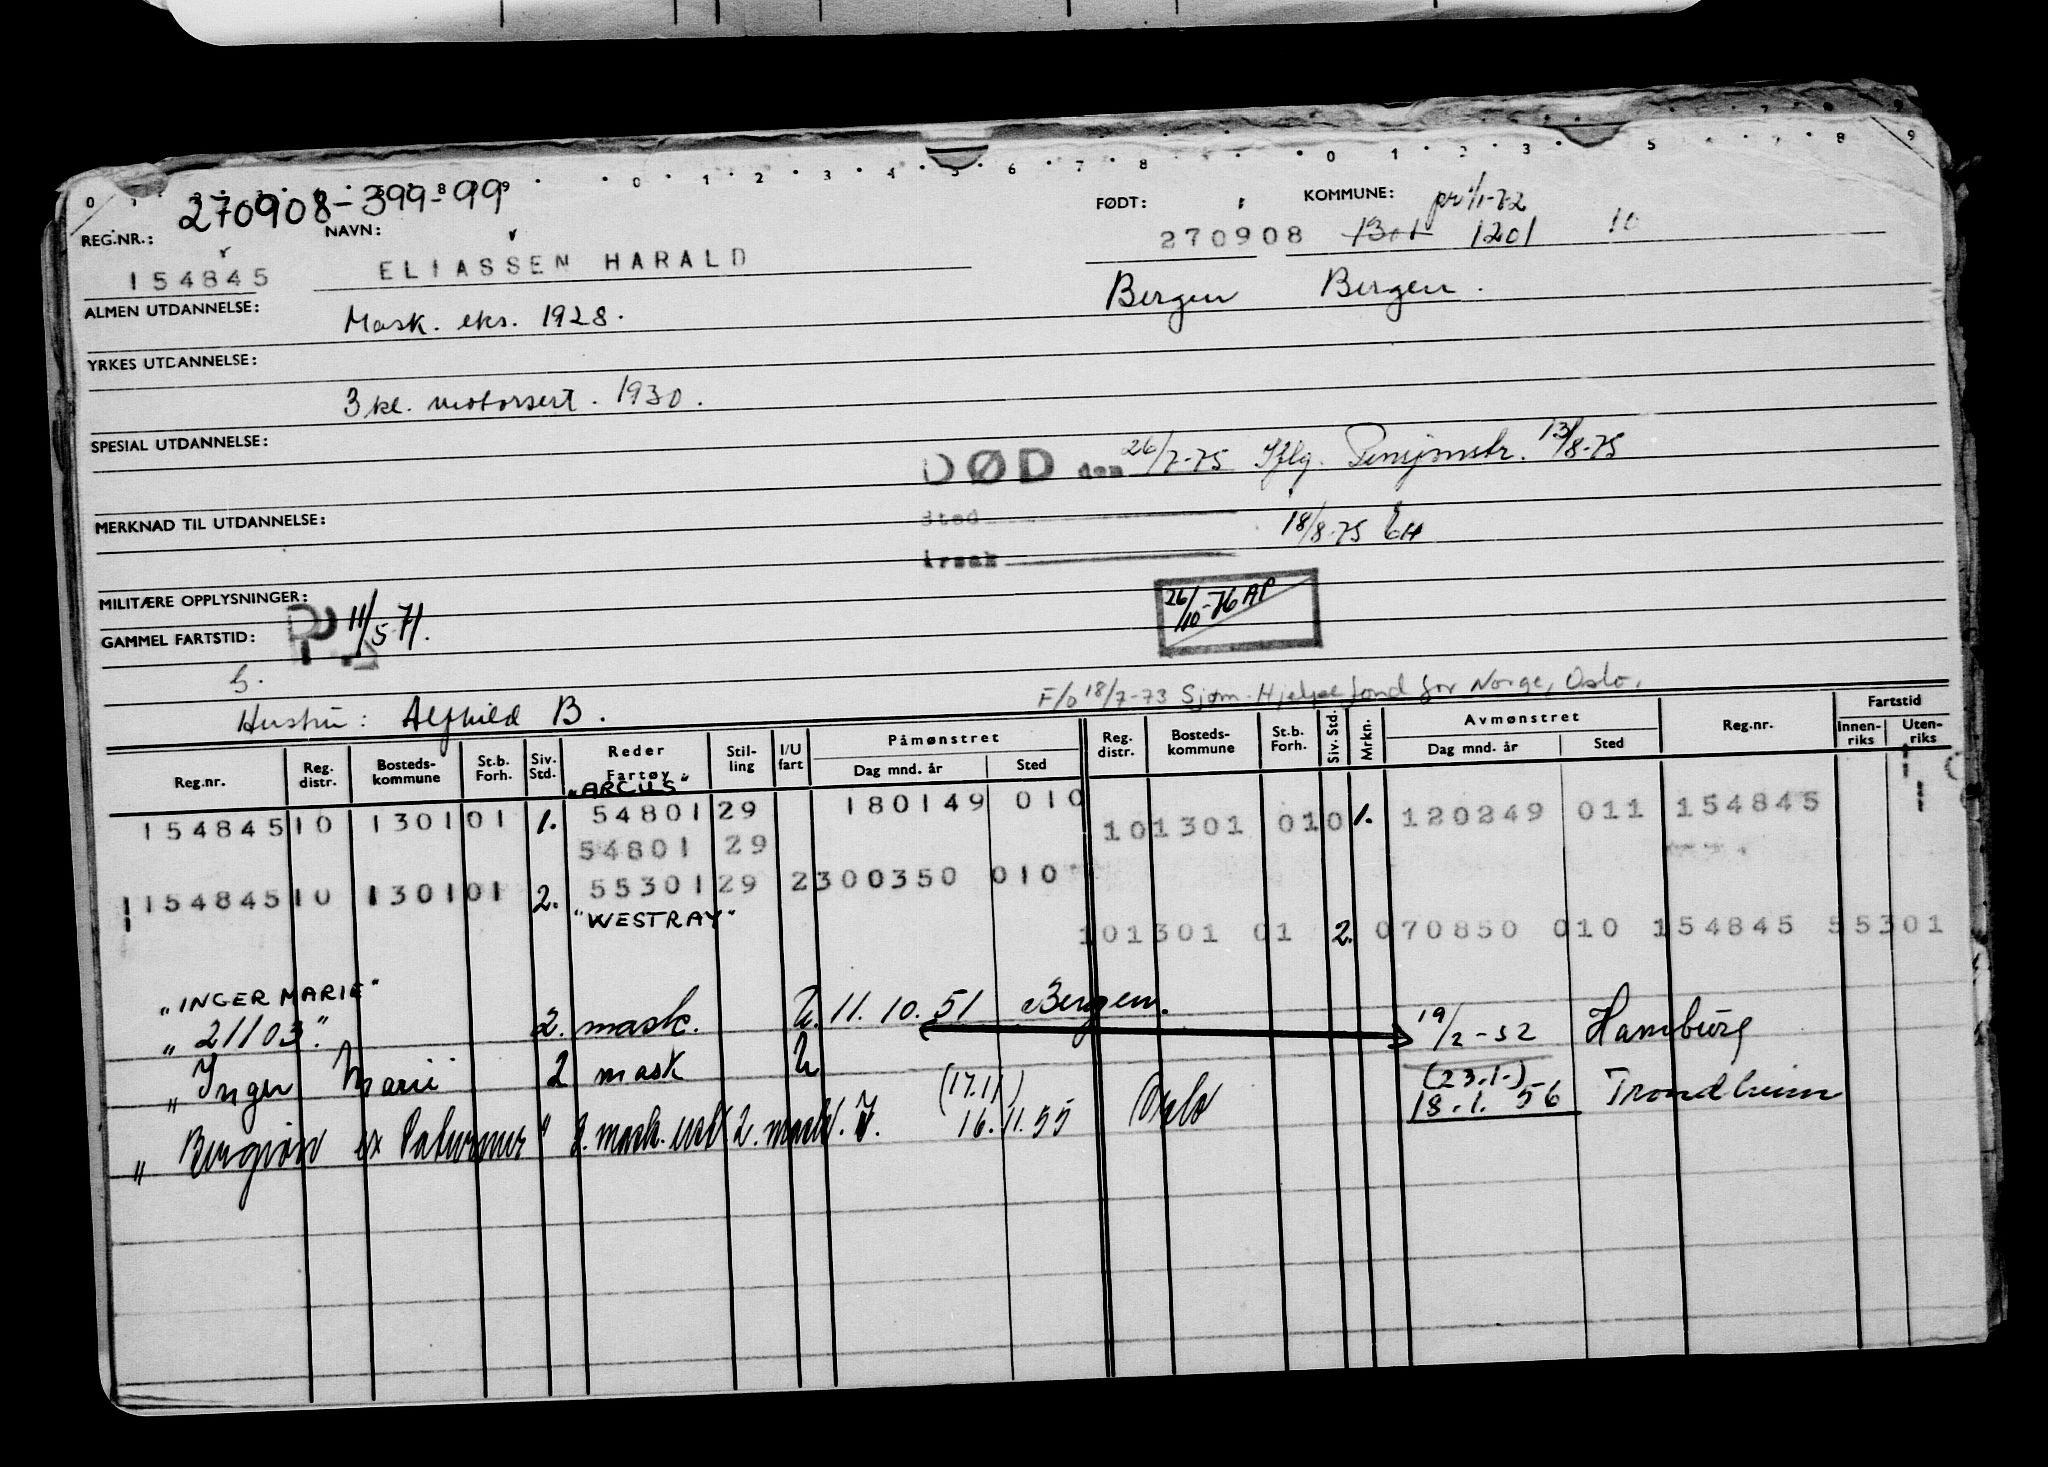 0 1 8 9 0 1 2 3 4 5 6 7 8 0 1 2 3 5 7 8 9
270908-399-99
REG.NR.: NAVN: FØDT: KOMMUNE: pr 1/1-72
154845 ELIASSEN HARALD 270908 1301 1201 10
ALMEN UTDANNELSE: Mask. eks. 1928. Bergen Bergen.
YRKES UTDANNELSE:
3 kl. motorsert. 1930.
SPESIAL UTDANNELSE:
DØD den 26/7-75 Iflg. Pensjonstr. 13/8-75
MERKNAD TIL UTDANNELSE: Sted 18/8-75 EH
Årsak
MILITÆRE OPPLYSNINGER: 26/10-76 AP
GAMMEL FARTSTID: 11/5-71.
G.
F/o 18/7-73 Sjøm. Hjelpefond for Norge, Oslo.
Hustru: Alfhild B.
Reg.nr. Reg. distr. Bosteds-kommune St.b. Forh. Siv. Std. Reder Fartøy Stil-ling I/U fart Påmønstret Dag mnd. år Sted Reg. distr. Bosteds-kommune St.b. Forh. Siv. Std. Mrkn. Avmønstret Dag mnd. år Sted Reg.nr. Fartstid Innen-riks Uten-riks
"ARCUS"
154845 10 1301 01 1. 54801 29 180149 010 10 1301 01 0 1. 120249 011 154845
54801 29
154845 10 1301 01 2. 55301 29 2 300350 010
"WESTRAY"
10 1301 01 2. 070850 010 154845 55301
"INGER MARIE"
"21103." 2. mask. U. 11.10.51 Bergen. 19/2-52 Hamburg
"Inger Marie" 2 mask U
(17.11) (23.1.)
" ex Saturnus" 2. mask. 2. mask. I. 16.11.55 Oslo 18.1.56 Trondheim